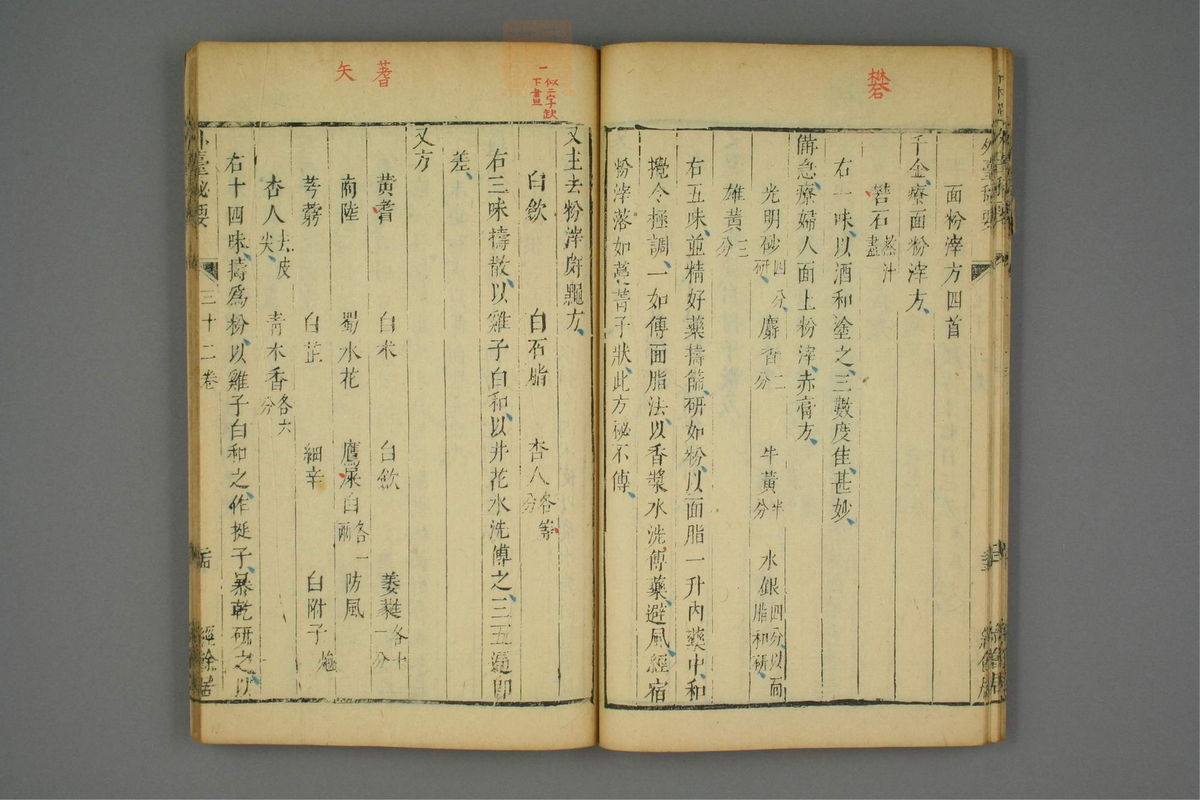 礬
面粉滓方四首
千金療面粉滓方
礬石燕汁盡
右一味以酒和塗之三數度佳甚妙
備急療婦人面上粉滓赤膏方
光明砂四分研 麝香二分 牛黃半分 水銀四分以面脂和研
雄黃三分
右五味並精好藥擣篩研如粉以面脂一升內藥中和
攪令極調一如傅面脂法以香漿水洗傅藥避風經宿
粉滓落如蔓菁子狀此方祕不傳
似二字欽
一下畫
蓍
矢
又主去粉滓皯䵳方
白歛 白石脂 杏人各等分
右三味擣散以雞子白和以井花水洗傅之三五遍即
差
又方
黃耆 白朮 白歛 萎蕤各十一分
商陸 蜀水花 鷹屎白各一兩 防風
芎藭 白芷 細辛 白附子炮
杏人去皮尖 青木香各六分
右十四味擣爲粉以雞子白和之作挺子暴乾研之以
外臺祕要 三十二卷 經餘居